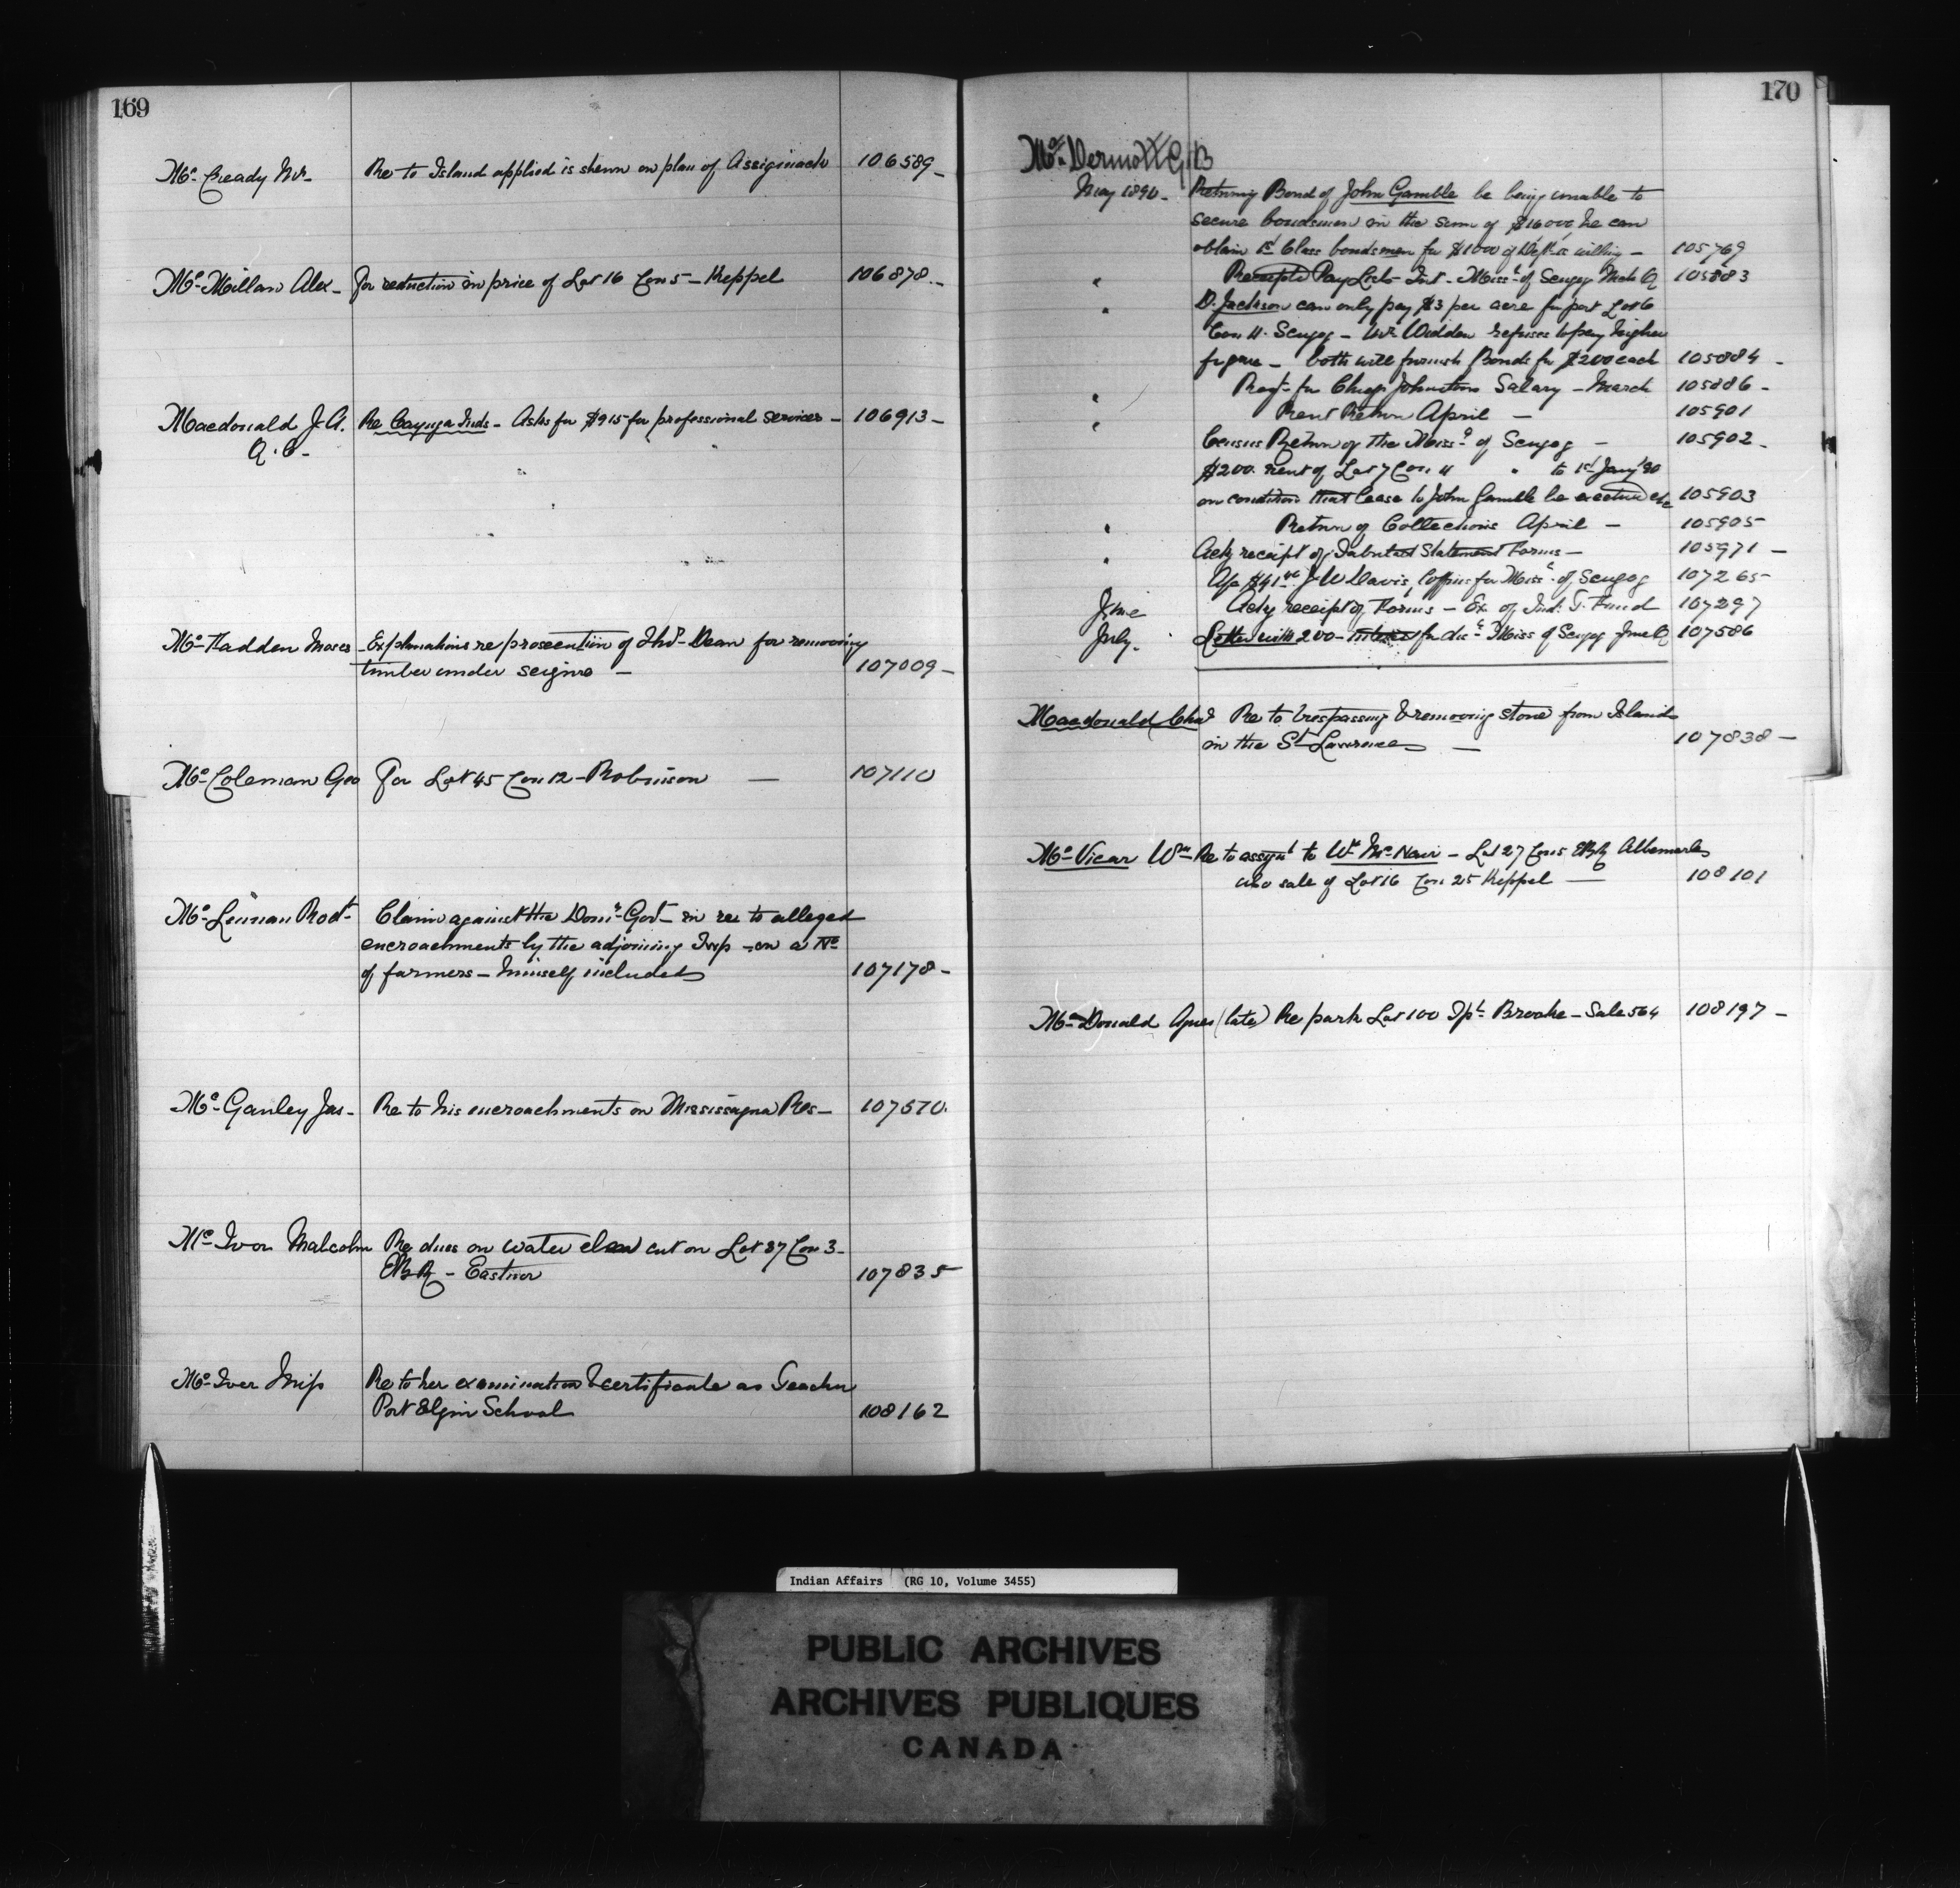 169
Mc Cready Wm Re to Island applied is shewn on plan of Assiginack 106589
Mc Millan Alex - For reduction in price of Lot 16 Con 5 - Keppel 106878 -
Macdonald J. A. Re Cayuga Inds - Asks for $915 for professional services - 106913 -
Q. C. -
Mc Fadden Moses - Explanations re prosecution of Thos Dean for removing
timber under seizure - 107009 -
Mc Coleman Geo For Lot 45 Con 12 - Robinson - 107110
Mc Lennan Rodk Claim against the Domn Govt in re to alleged
encroachments by the adjoining Twp - on a No
of farmers - himself included 107178 -
Mc Ganley Jas - Re to his encroachments on Mississagua Res - 107570
Mc Ivor Malcolm Re dues on water elm cut on Lot 37 Con 3 -
EBR - Eastnor 107835
Mc Iver Miss Re to her examination & certificate as Teacher
Port Elgin School 108162
170
Mc Dermott G B
May 1890 - Returning Bond of John Gamble he being unable to
secure bondsmen in the sum of $16000, he can
obtain 1st Class bondsmen for $1000 if Dept is willing - 105769
" Receipted Pay List - Int - Missa of Scugog Mch Q 105883
" D. Jackson can only pay $3 per acre for part Lot 6
Con 11. Scugog - Widden refuses to pay higher
figure - both will furnish Bonds for $200 each 105884 -
" Reqt for Chief Johnston's Salary - March 105886 -
" Rent Return April - 105901
Census Return of the Missa of Scugog - 105902 -
$200. rent of Lot 7 Con 11 " to 1st Jany 90
on condition that lease to John Gamble be executed etc 105903
" Return of Collections April - 105905
" Ackg receipt of Tabulated Statement Forms - 105971 -
J W Davis, Coffins for Missa of Scugog 107265
June Ackg receipt of Forms - Ex of Ind. T. Fund 107297
July - Letter with 200 - for dis - Missa of Scugog June Q 107586
Macdonald Chas Re to trespassing & removing stone from Islands
in the St Lawrence - 107838 -
Mc Vicar Wm Re to assgnt to Wm McNair - Lot 27 Con 5 EBR Albemarle
also sale of Lot 16 Con 25 Keppel - 108101
Mc Donald Agnes (late) Re park Lot 100 Tp Brooke - Sale 564 108197 -
Indian Affairs (RG 10, Volume 3455)
PUBLIC ARCHIVES
ARCHIVES PUBLIQUES
CANADA